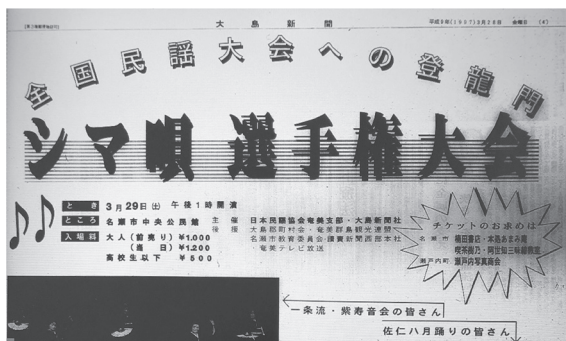 大島新聞
平成9年(1997)3月28日 金曜日
全国民謡大会への登龍門
シマ唄選手権大会
とき 3月29日(土) 午後1時開演
ところ 名瀬市中央公民館
入場料 大人(前売り)¥1.000
(当日)¥1.200
高校生以下 ¥500
主催 日本民謡協会奄美支部・大島新聞社
後援 大島郡町村会・奄美群島観光連盟
名瀬市教育委員会・讀賣新聞西部本社
・奄美テレビ放送
チケットのお求めは
名瀬市 楠田書店・本処あまみ庵
喫茶樹乃・阿世知三味線教室
瀬戸内町 瀬戸内写真商会
一条流・紫寿音会の皆さん
佐仁八月踊りの皆さん